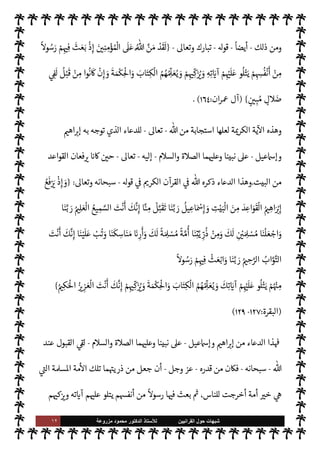 ومن ذلك - أيضاً - قوله - تبارك وتعالى - (لَقَدْ مَنَّ اللَّهُ عَلَى الْمُؤْمِنِينَ إِذْ بَعَثَ فِيهِمْ رَسُولاً
مِنْ أَنْفُسِهِمْ يَتْلُو عَلَيْهِمْ آيَاتِهِ وَيُزَكِّيهِمْ وَيُعَلِّمُهُمُ الْكِتَابَ وَالْحِكْمَةَ وَإِنْ كَانُوا مِنْ قَبْلُ لَفِي
ضَلالٍ مُبِينٍ) (آل عمران:١٦٤) .
وهذه الآية الكريمة لعلها استجابة من الله - تعالى - للدعاء الذي توجه به إبراهيم
وإسماعيل - على نبينا وعليهما الصلاة والسلام - إليه - تعالى - حين كانا يرفعان القواعد
من البيت.وهذا الدعاء ذكره الله في القرآن الكريم في قوله - سبحانه وتعالى: (وَإِذْ يَرْفَعُ
إِبْرَاهِيمُ الْقَوَاعِدَ مِنَ الْبَيْتِ وَإِسْمَاعِيلُ رَبَّنَا تَقَبَّلْ مِنَّا إِنَّكَ أَنْتَ السَّمِيعُ الْعَلِيمُ رَبَّنَا
وَاجْعَلْنَا مُسْلِمَيْنِ لَكَ وَمِنْ ذُرِّيَّتِنَا أُمَّةً مُسْلِمَةً لَكَ وَأَرِنَا مَنَاسِكَنَا وَتُبْ عَلَيْنَا إِنَّكَ أَنْتَ
التَّوَّابُ الرَّحِيمُ رَبَّنَا وَابْعَثْ فِيهِمْ رَسُولاً
مِنْهُمْ يَتْلُو عَلَيْهِمْ آيَاتِكَ وَيُعَلِّمُهُمُ الْكِتَابَ وَالْحِكْمَةَ وَيُزَكِّيهِمْ إِنَّكَ أَنْتَ الْعَزِيزُ الْحَكِيمُ)
(البقرة:١٢٧- ١٢٩)
فهذا الدعاء من إبراهيم وإسماعيل - على نبينا وعليهما الصلاة والسلام - لقي القبول عند
الله - سبحانه - فكان من قدره - عز وجل - أن جعل من ذريتهما تلك الأمة المسلمة التي
هي خير أمة أخرجت للناس، ثم بعث فيها رسولاً من أنفسهم يتلو عليهم آياته ويزكيهم
شبهات حول القرآنيين للأستاذ الدكتور محمود مزروعة ١٢